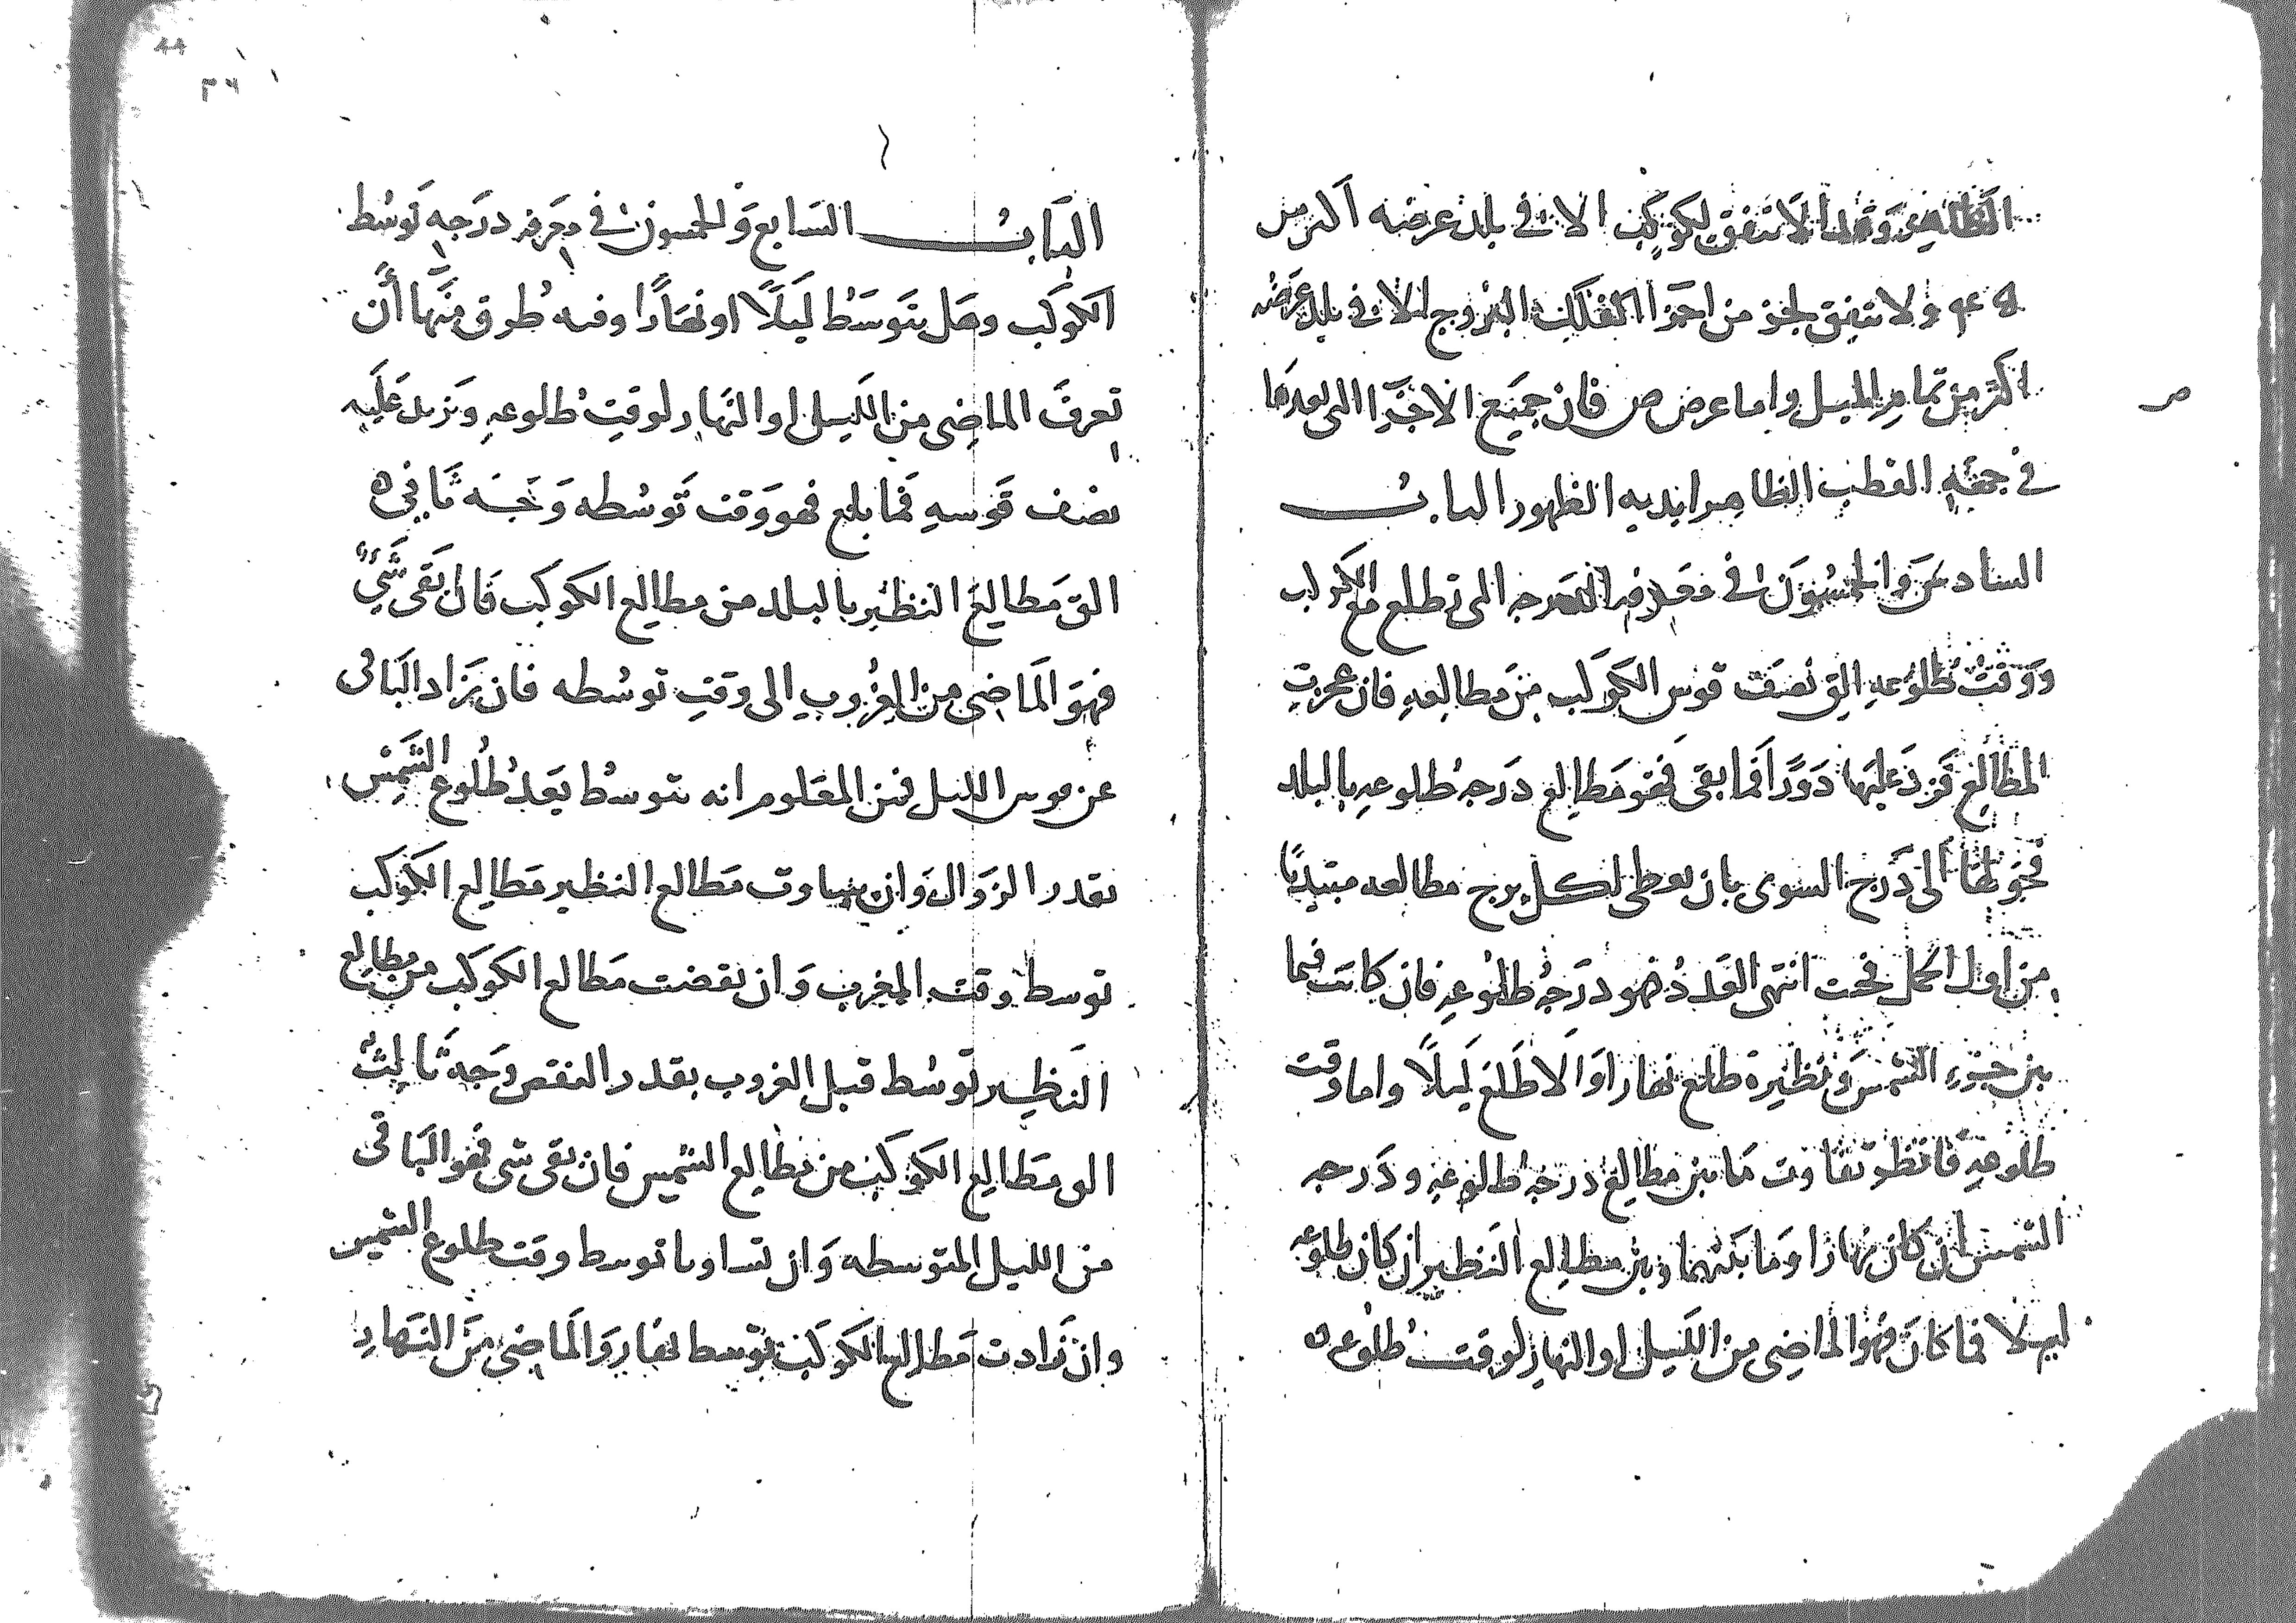 الظاهر وهذا لا يتفق لكوكب الا في بلد عرضه اكثر من
ولا يتفق لجزء من اجزا الفلك البروج الا في بلد عرضه
اكثر من تمام الميل واما عرض ص فان جميع الاجزا التي بعدها
ص
في جهة القطب الظاهر ابدية الظهور الباب
السادس والخمسون في معرفة الدرجه التي تطلع مع الكوكب
ووقت طلوعه الق نصف قوس الكوكب من مطالعه فان عجزت
المطالع فزد عليها دورا فما بقى فهو مطالع درجة طلوعه بالبلد
فحولها الى درج السوى بان يعطى لكل برج مطالعه مبتديًا
من اول الحمل فحيث انتهى العدد فهو درجة طلوعه فان كانت فيما
بين جزء الشمس ونظيره طلع نهارا والا طلع ليلًا واما وقت
طلوعه فانظر تفاوت ما بين مطالع درجة طلوعه ودرجه
الشمس ان كان نهارا وما بينهما وبين مطالع النظير ان كان طلوعه
ليلا فما كان فهو الماضي من الليل او النهار لوقت طلوعه
٣٦
الباب السابع والخمسون في معرفة درجه توسط
الكوكب وهل يتوسط ليلًا او نهارًا وفيه طرق منها أن
تعرف الماضي من الليل او النهار لوقت طلوعه وتزيد عليه
نصف قوسه فما بلغ فهو وقت توسطه وجه ثاني
الق مطالع النظير بالبلد من مطالع الكوكب فان بقى شيءٌ
فهو الماضي من الغروب الى وقت توسطه فان زاد الباقي
عن قوس الليل فمن المعلوم انه يتوسط بعد طلوع الشمس
بقدر الزوال وان تساوت مطالع النظير مطالع الكوكب
توسط وقت المغرب وان نقصت مطالع الكوكب من مطالع
النظير توسط قبل الغروب بقدر النقص وجه ثالث
الق مطالع الكوكب من مطالع الشمس فان بقى شى فهو الباقي
من الليل لمتوسطه وان تساويا توسط وقت طلوع الشمس
وان زادت مطالع الكوكب توسط نهارا والماضي من النهار